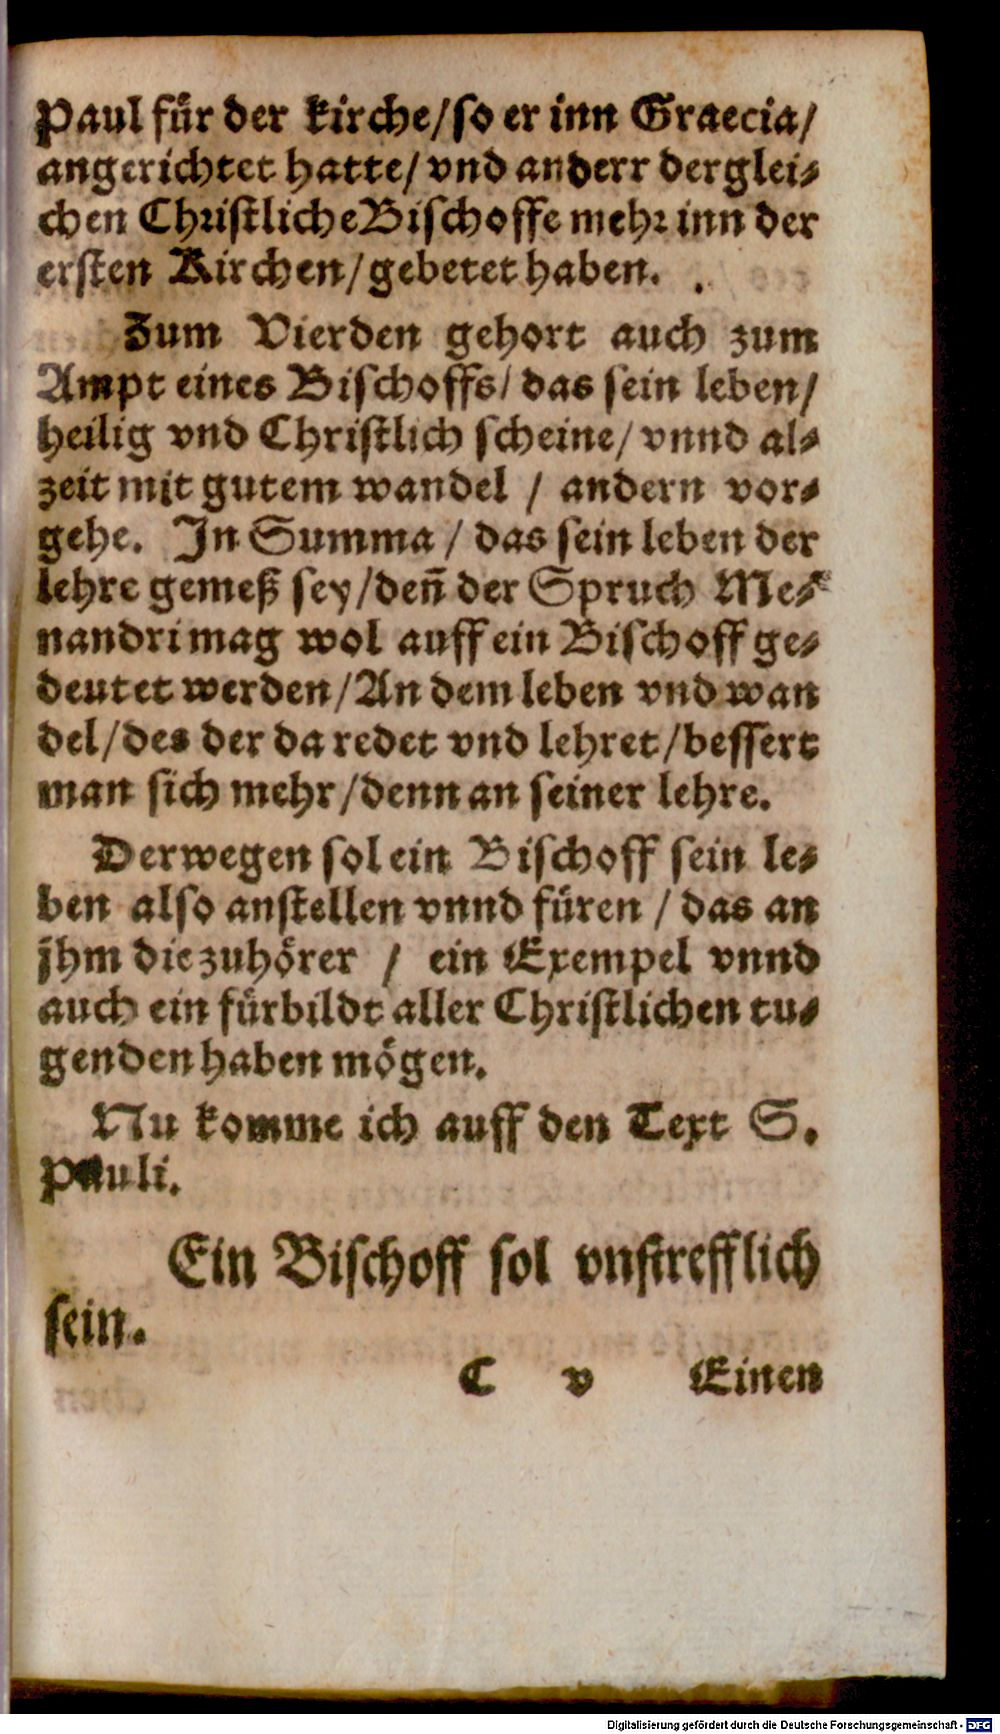 Paul für der kirche/so er inn Graecia/
angerichtet hatte/ vnd anderr derglei⸗
chen Christliche Bischoffe mehr inn der
ersten Kirchen/gebetet haben.
Zum Vierden gehort auch zum
Ampt eines Bischoffs/ das sein leben/
heilig vnd Christlich scheine/ vnnd al⸗
zeit mit gutem wandel / andern vor⸗
gehe. In Summa / das sein leben der
lehre gemeß sey/den̄ der Spruch Me⸗
nandri mag wol auff ein Bischoff ge⸗
deutet werden/An dem leben vnd wan
del/des der da redet vnd lehret/bessert
man sich mehr/denn an seiner lehre.
Derwegen sol ein Bischoff sein le⸗
ben also anstellen vnnd füren / das an
jhm die zuhörer / ein Exempel vnnd
auch ein fürbildt aller Christlichen tu⸗
genden haben mögen.
Nu komme ich auff den Text S.
Pauli.
Ein Bischoff sol vnstrefflich
sein.
C v Einen
Digitalisierung gefördert durch die Deutsche Forschungsgemeinschaft - DFG